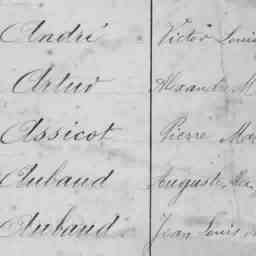 André Victor Louis
Artur Alexand M
Assicot Pierre Ma
Aubaud Auguste
Aubaud Jean Louis